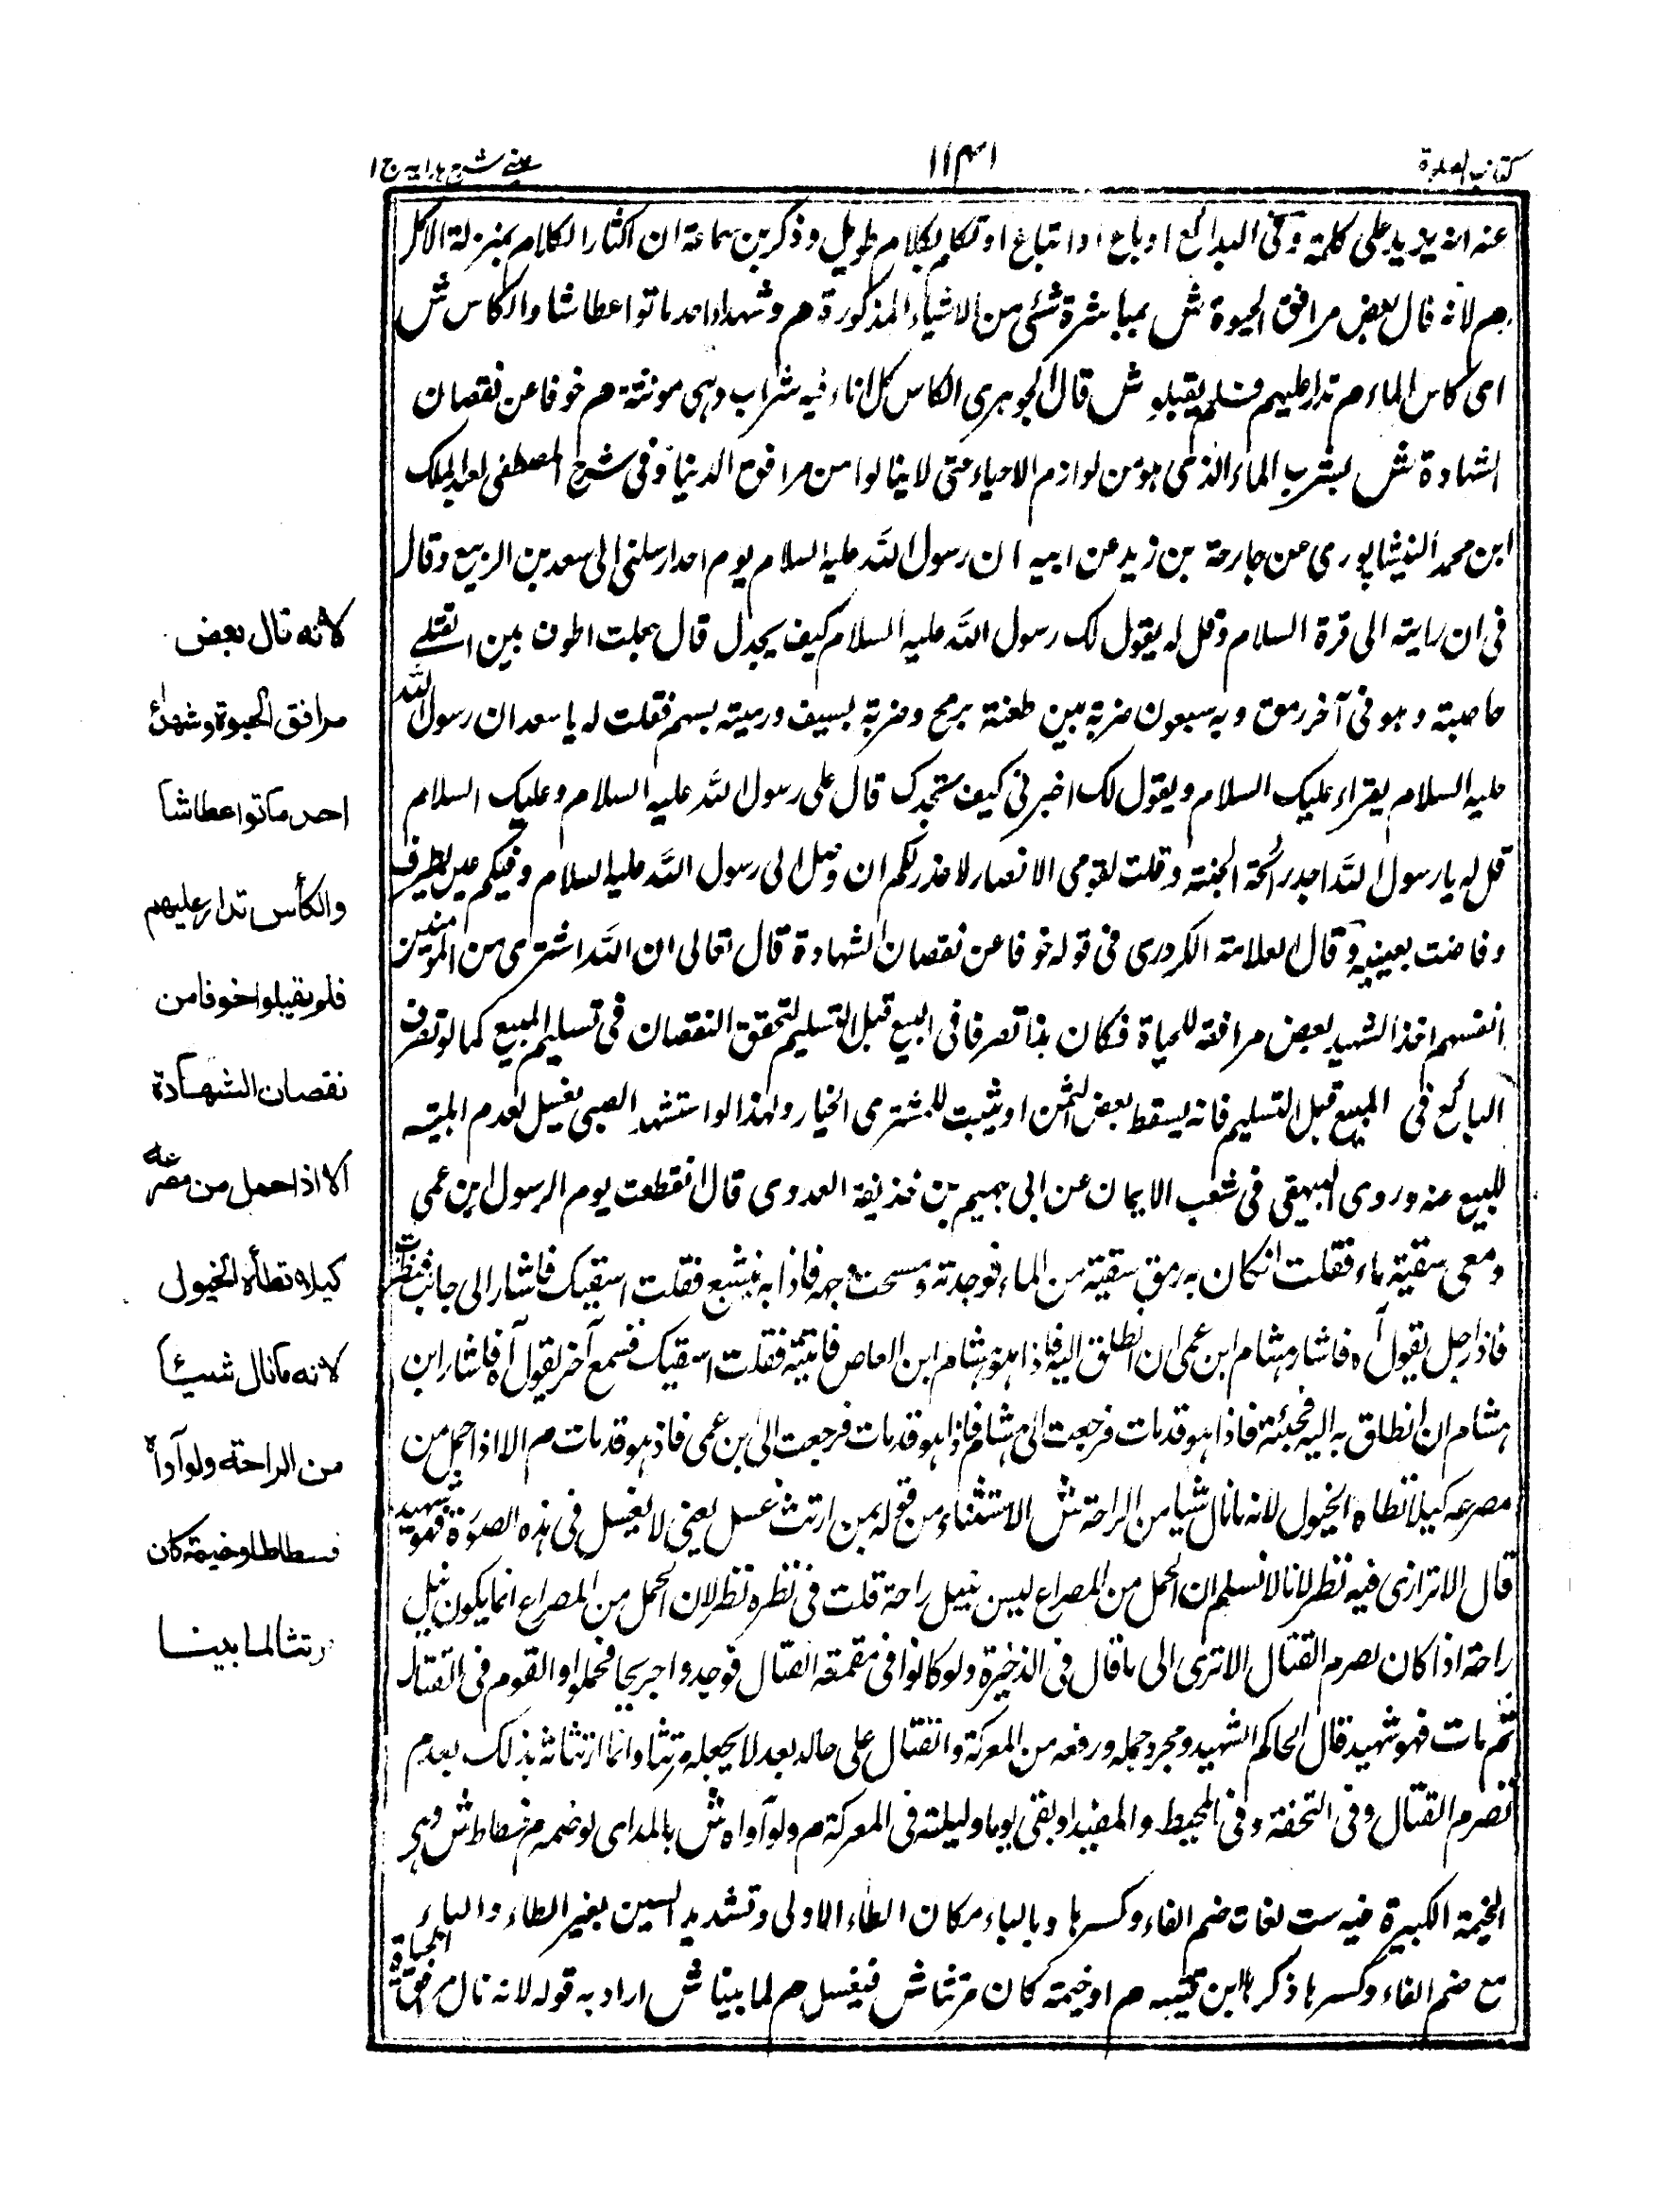 كتاب الصلوة
١١٣١
عيني شرح هدايه ج ١
عنه انه يزيد على كلمة وفي البدائع او باع او ابتاع او تكلم بكلام طويل وذكر بن سماعة ان اكثار الكلام بمنزلة الاكل
م لانه نال بعض مرافق الحيوة ش بمباشرة شئ من الاشياء المذكورة م وشهداء احد ماتوا عطاشا والكاس ش
اى كاس الماء م تدار عليهم فلم يقبلو ش قال الجوهرى الكاس كل اناء فيه شراب وهى مونثة م خوفا عن نقصان
الشهادة ش لبشرب الماء الذى هو من لوازم الاحياء حتى لا ينالوا من مرافق الدنيا وفى شرح المصطفى لعبد الملك
ابن محمد النيشاپورى عن جارحة بن زيد عن ابيه ان رسول الله عليه السلام يوم احد ارسلنى الى سعد بن الربيع وقال
فى ان رايته الى قرة السلام وقل له يقول لك رسول الله عليه السلام كيف يجدل قال فجلت اطوف بين القتلى
حاصبته وهو فى آخر رمق وبه سبعون ضربة بين طعنة برمح وضربة بسيف ورميته بسهم فقلت له يا سعد ان رسول الله
عليه السلام يقراء عليك السلام ويقول لك اخبرنى كيف ستجدك قال على رسول الله عليه السلام وعليك السلام
قل له يا رسول الله اجد رائحة الجنة وقلت لقومى الانصار لا عذر لكم ان وصل الى رسول الله عليه السلام وفيكم عين تطرف
وفاضت بعينيه وقال العلامة الكردرى فى قوله خوفا عن نقصان الشهادة قال تعالى ان الله اشترى من المومنين
انفسهم اخذ الشهيد بعض مرافقه للحياة فكان هذا تصرفا فى البيع قبل التسليم لتحقق النقصان فى تسليم المبيع كما لو تصرف
البائع فى المبيع قبل التسليم فانه يسقط بعض الثمن او يثبت للمشترى الخيار ولهذا لو استشهد الصبى يغسيل لعدم البيتة
للبيع منه وروى البيهقى فى شعب الايمان عن ابى جهيم بن حذيفة العدوى قال انقطعت يوم الرسول ابن عمى
ومعى سقية ماء فقلت ان كان به رمق سقية من الماء فوجدته ومسحت وجهه فاذا به ينشع فقلت اسقيك فاشار الى جانب فنظرت
فاذا رجل يقول آه فاشار هشام ابن عمى ان انطلق اليه فاذا هو هشام ابن العاص فاتيته فقلت اسقيك فسمع آخر يقول آه فاشار ابن
هشام ان انطلق به اليه فجئته فاذا هو قد مات فرجعت الى هشام فاذا هو قد مات فرجعت الى بن عمى فاذ هو قد مات م الا اذا حمل من
مصرعه كيلا تطاه الخيول لانه ما نال شيا من الراحة ش الاستثناء من قوله من ارتث غسل يعنى لا يغسل فى هذه الصورة فهو شهيد
قال الاترازى فيه نظر لانا لا نسلم ان الحمل من المصراع ليس بنيل راحة قلت فى نظره نظر لان الحمل من المصراع انما يكون نيل
راحة اذا كان لصرم القتال الا ترى الى ما قال فى الذخيرة ولو كانوا فى مقمعة القتال فوجدوا جريحا فحملوا والقوم فى القتال
ثم مات فهو شهيد قال الحاكم الشهيد ومجرد حمله ورفعه من المعركة والقتال على حاله بعد لا يجعله مرتثا وانما ارتثاثه بذلك بعدم
تصرم القتال وفى التحفة وفى المحيط والمفيد او بقى يوما وليلة فى المعركة م ولو آواه ش بالمد اى لو ضمه م فسطاط ش وهى
الخيمة الكبيرة فيه ست لغات ضم الفاء وكسرها وبالباء مكان الطاء الاولى وتشديد السين بغير الطاء والباء
مع ضم الفاء وكسرها ذكرها ابن قتيبه م او خيمة كان مرتثا ش فيغسل م لما بينا ش اراد به قوله لانه نال مرافق الحياة
لانه نال بعض
مرافق الحيوة وشهداء
احد ماتوا عطاشا
والكأس تدار عليهم
فلم يقبلوا خوفا من
نقصان الشهادة
الا اذا حمل من مصرعه
كيلا تطأه الخيول
لانه ما نال شيئا
من الراحة ولو آواه
فسطاط او خيمة كان
مرتثا لما بينا